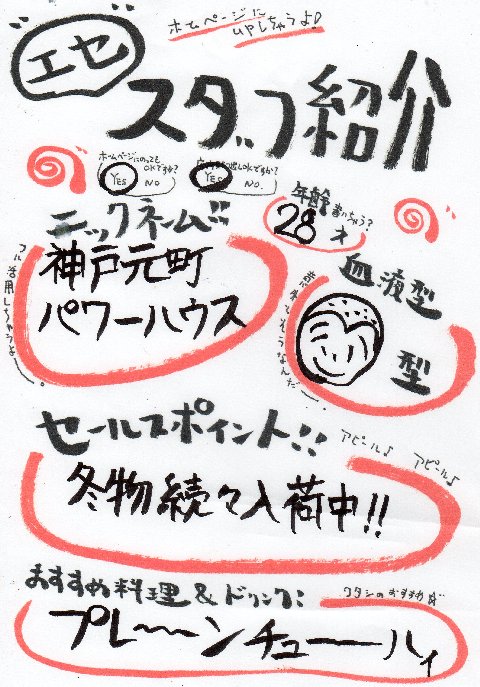 ホームページに
UPしちゃうよ!
エセ
スタッフ紹介
ホームページにのっても
OKですか?
YES NO
OKですか?
YES NO.
年齢
28才
ニックネーム!!
神戸元町
パワーハウス
フル活用しちゃうよー。
血液型
型
セールスポイント!!
アピール♪ アピール♪
冬物続々入荷中!!
おすすめ料理&ドリンク:
ワタシのおすすめ☆
プレ〜〜ンチューーハィ